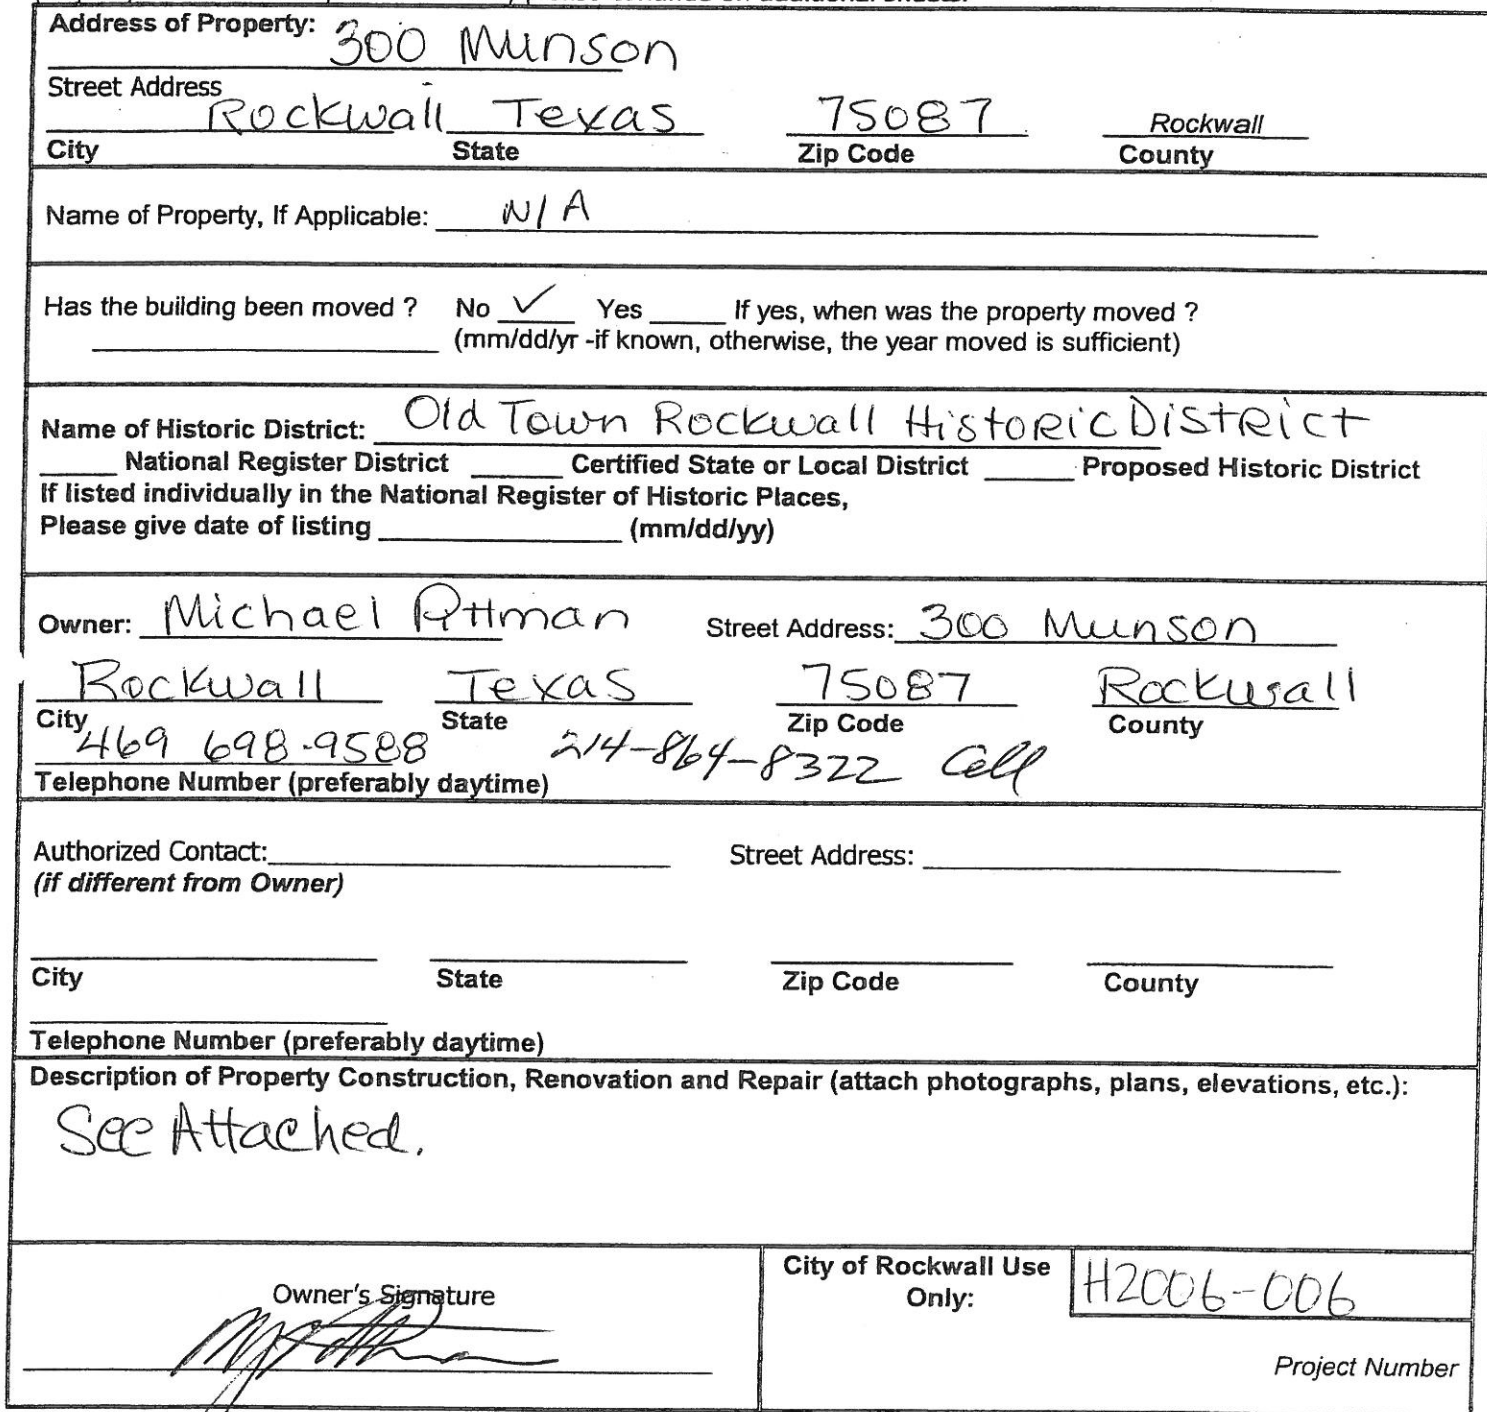 Address of Property: 300 Munson
Street Address
Rockwall Texas 75087 Rockwall
City State Zip Code County
Name of Property, If Applicable: N/A
Has the building been moved ? No ✓ Yes If yes, when was the property moved ?
(mm/dd/yr -if known, otherwise, the year moved is sufficient)
Name of Historic District: Old Town Rockwall Historic District
National Register District Certified State or Local District Proposed Historic District
If listed individually in the National Register of Historic Places,
Please give date of listing (mm/dd/yy)
Owner: Michael Pittman Street Address: 300 Munson
Rockwall Texas 75087 Rockwall
City State Zip Code County
469 698-9588 214-864-8322 Cell
Telephone Number (preferably daytime)
Authorized Contact: Street Address:
(if different from Owner)
City State Zip Code County
Telephone Number (preferably daytime)
Description of Property Construction, Renovation and Repair (attach photographs, plans, elevations, etc.):
See Attached.
Owner's Signature
City of Rockwall Use
Only: H2006-006
Project Number